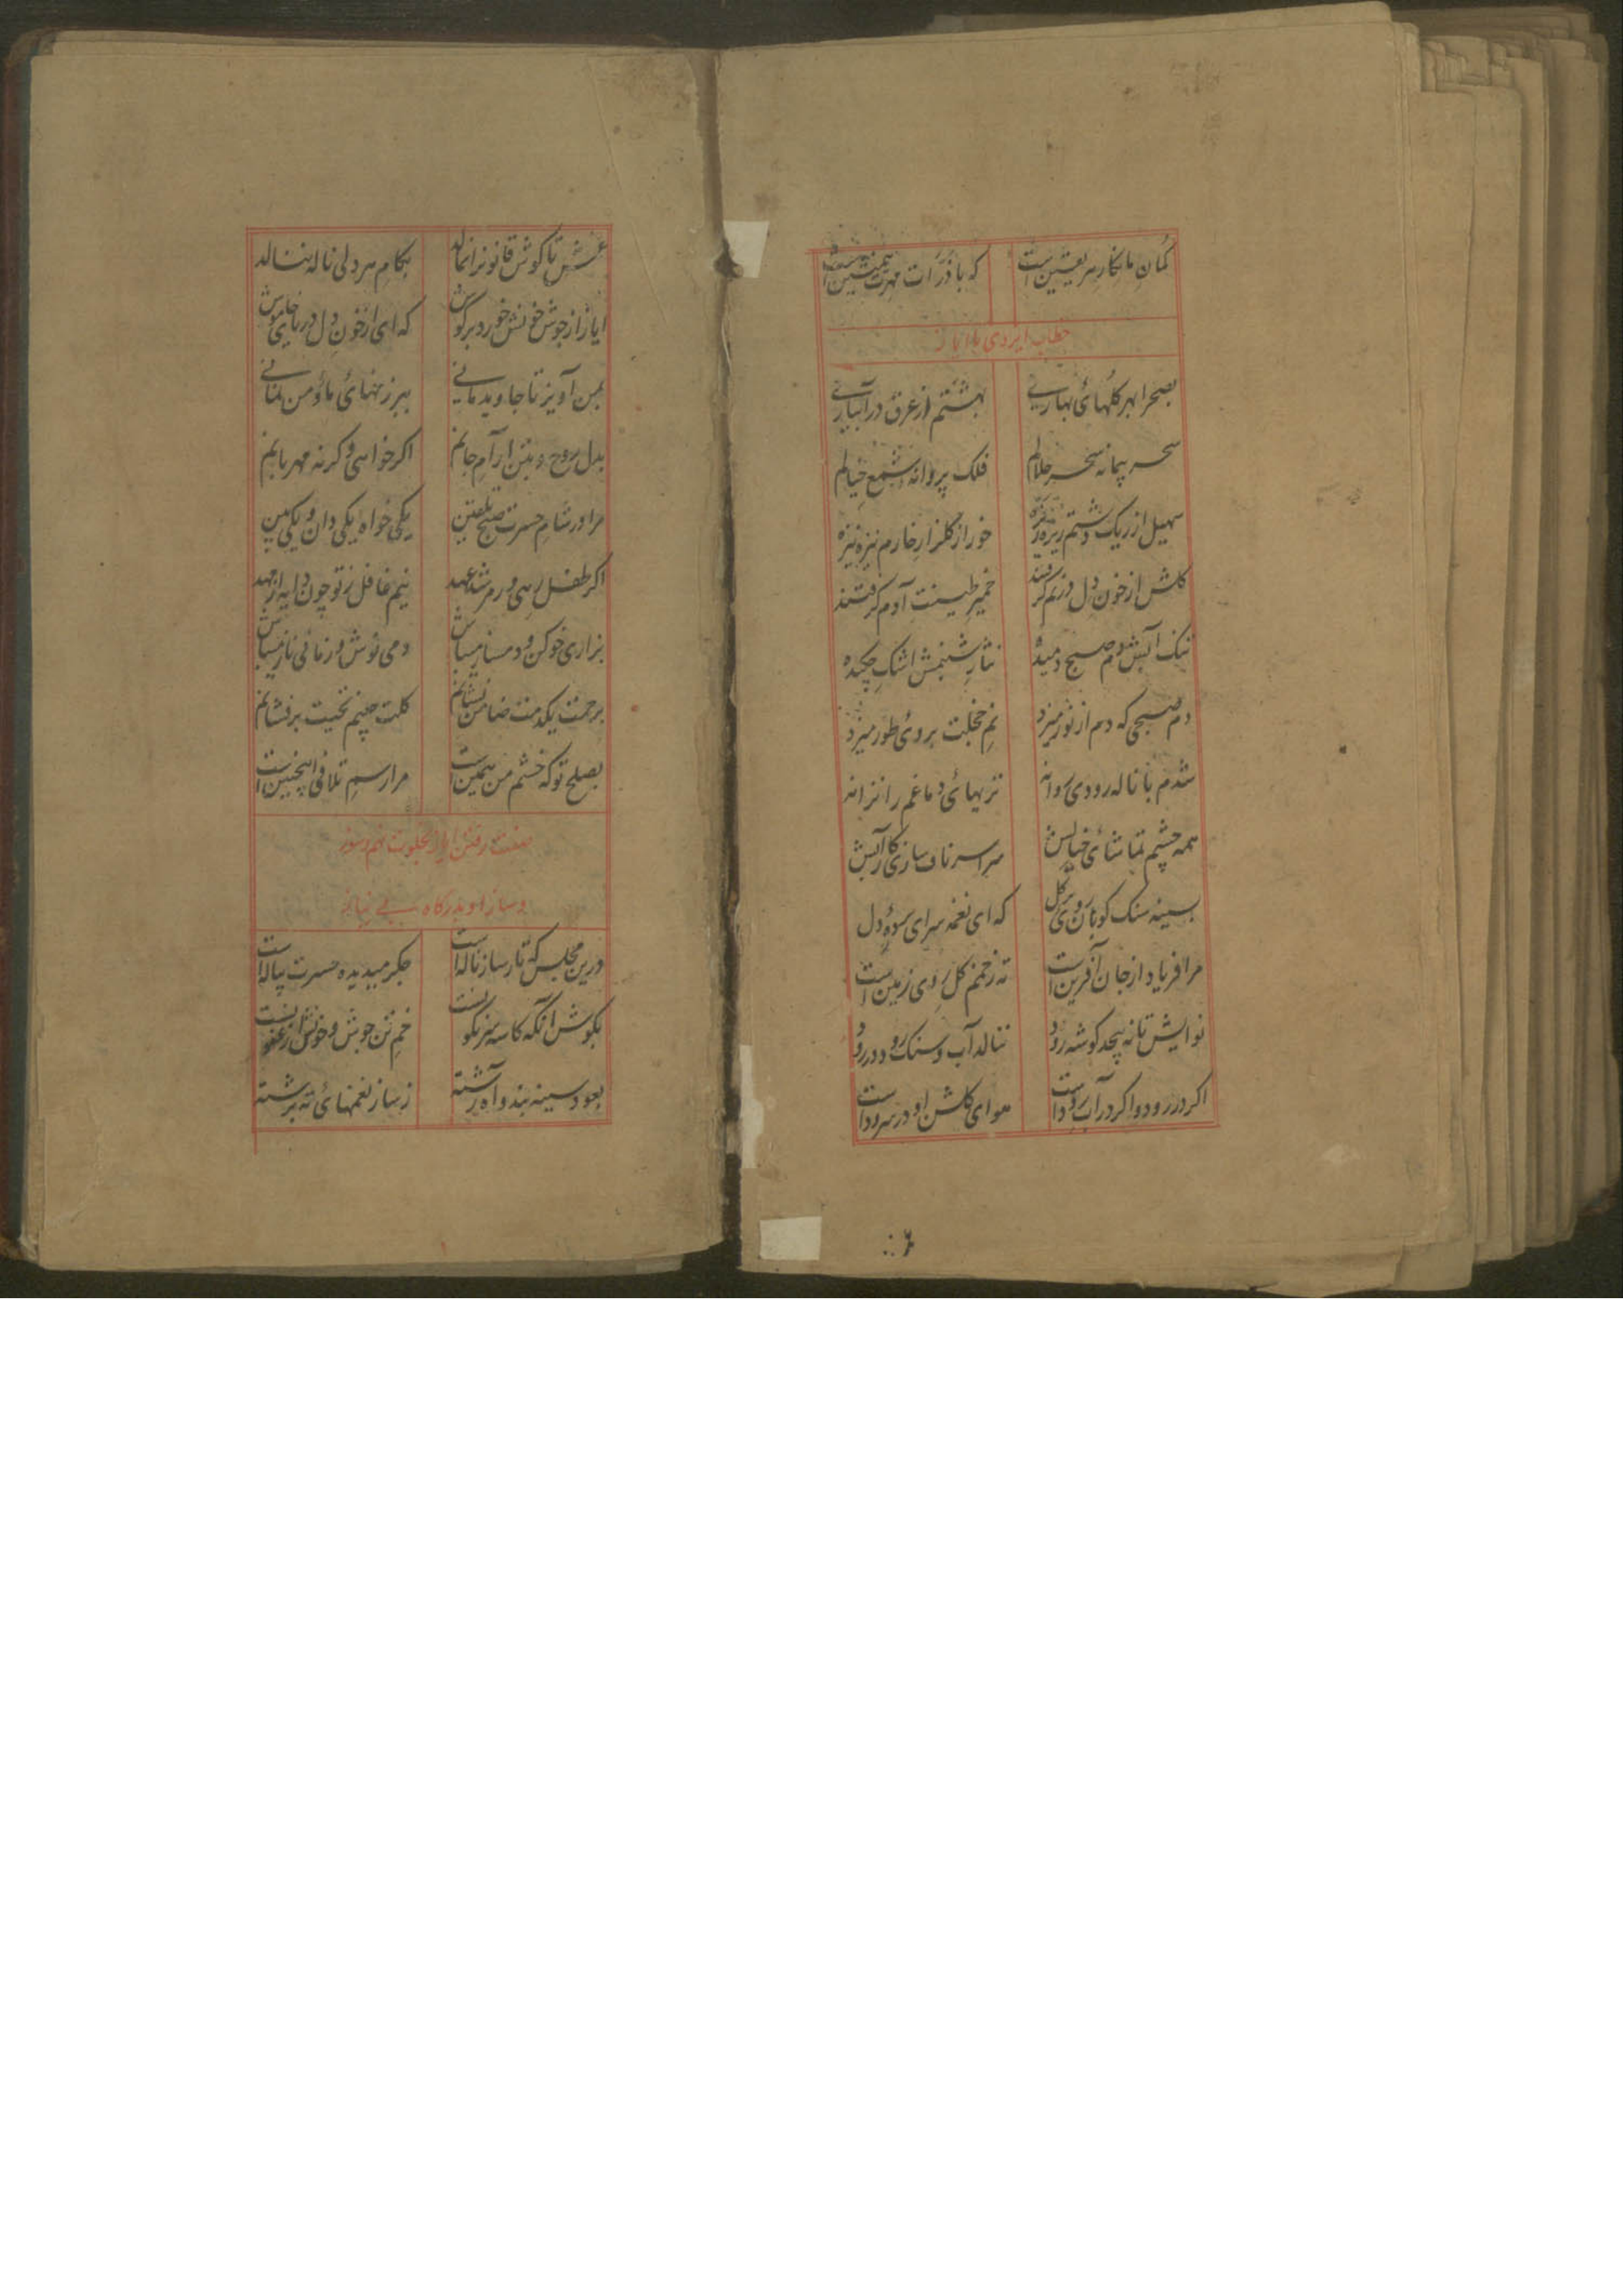 گمان ما نگار هر یقین است که با ذرات مهرت همنشین است
خطاب ایزدی با ایاز
بصحرا بهر گلهای بهاری بهشتم از عرق در آبیاری
سحر پیمانه سحر حلالم فلک پروانه شمع خیالم
سهیل از ریک دشتم ریزه خور از گلزار خارم نیزه نیزه
گلش از خون دل در نم گرفتند خمیر طینت آدم گرفتند
نمک آبش دم صبح دمیده نثار شبنمش اشک چکیده
دم صبحی که دم از نور میزد نم خجلت بروی طور میزد
شدم با ناله رودی روانه تریهای دماغم را ترانه
همه چشم تماشای خیالش سراسر ناف سازی
بسینه سنک کوبان روی بر گل که ای نغمه سرای پرده دل
مرا فریاد از جان آفرین است ته زخمم گل روی زمین است
نوایش تا نه پیچد گوشه رود ننالد آب و سنک رود در رود
اگر در رود و اگر در آب رود است هوای گلشن او در سرود است
غمش تا گوش قانونرا نمالد بکام هر دلی ناله ننالد
ایاز از جوش خونش خورد بر گوش که ای از خون دل دریا خاموش
بمن آویز تا جاوید مانی ببر زنهای ما و من
بدل روح و بتن آرام جانم اگر خواهی وگرنه مهربانم
مرا در شام حسرت صبح تلقین یکی خواه یکی دان و یکی بین
اگر طفل رهی ور مرشد عهد نیم غافل ز تو چون دایه از مهد
بزاری خو کن و دمساز میباش دمی نوش و زمانی ناز میباش
برحمت یکدمت ضامن نشانم گلت چینم نخیت برفشانم
بصلح تو که خشم من همین است مرا رسم تلافی اینچنین است
صفت رفتن ایاز بخلوت
و ساز او بدرگاه بی نیاز
درین مجلس که تار ساز ناله است جگر میدیده حسرت پیاله است
بگوش آنگه کاسه خم تن جوش و خونش
بعود سینه بند و آه رشته ز ساز نغمهای ته برشته